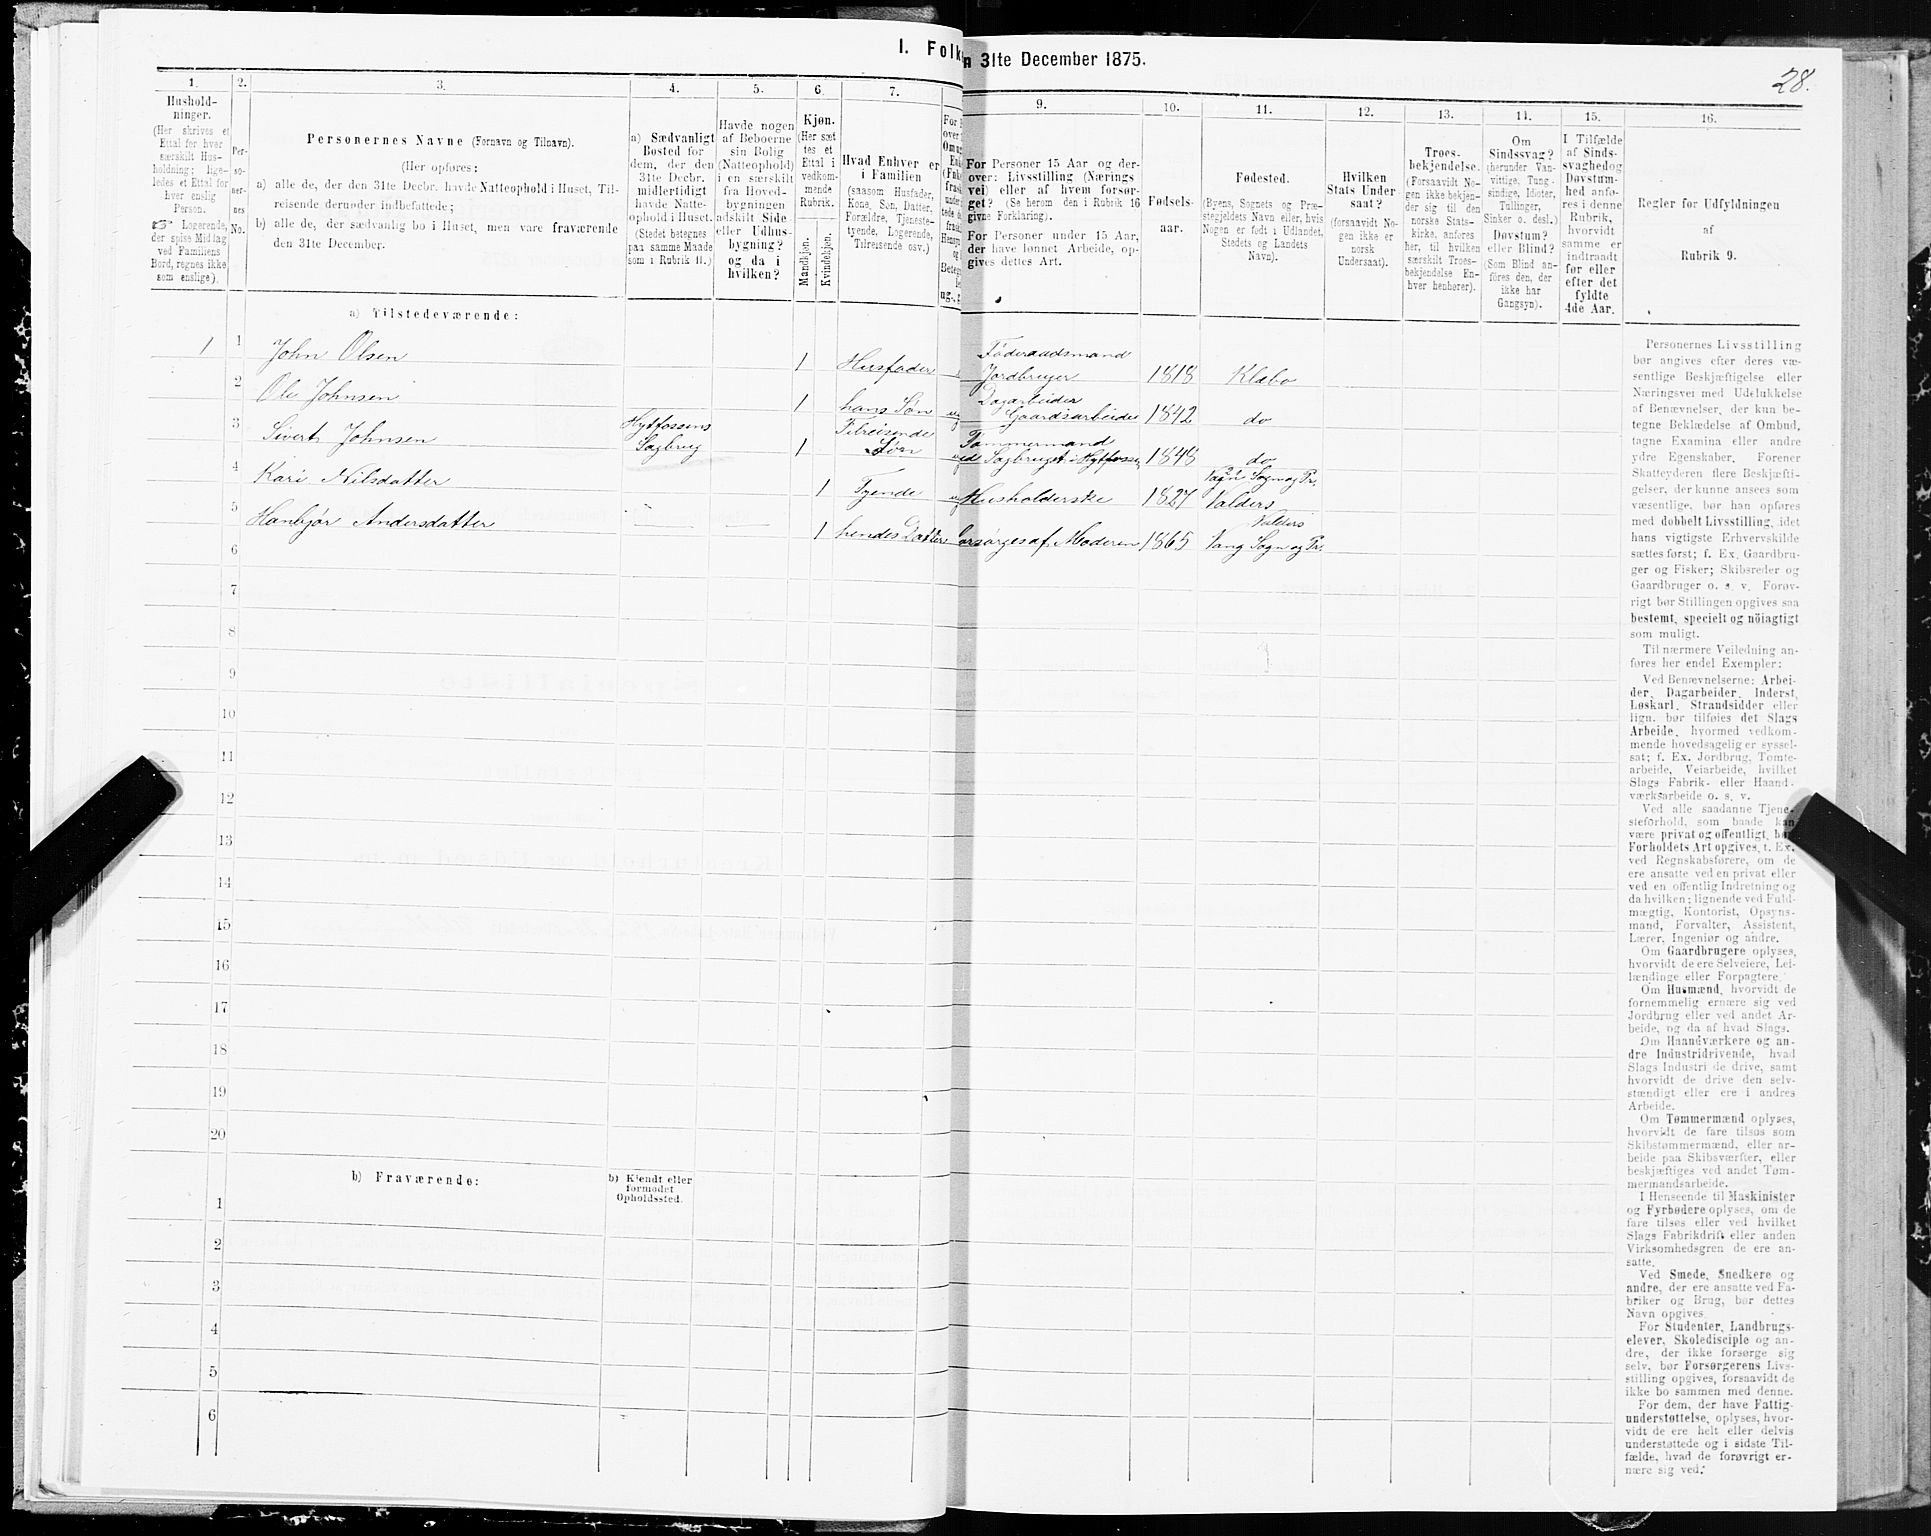 I. Folk
n 31te December 1875.
28.
1.
Hushold-
ninger.
(Her skrives et
Ettal for hver
særskilt Hus-
holdning; lige-
ledes et Ettal for
hver enslig
Person.
Logerende,
der spise Middag
ved Familiens
Bord, regnes ikke
som enslige).
2.
Per-
so-
ner-
nes
No.
3.
Personernes Navne (Fornavn og Tilnavn).
(Her opføres:
a) alle de, der den 31te Decbr. havde Natteophold i Huset, Til-
reisende derunder indbefattede;
b) alle de, der sædvanlig bo i Huset, men vare fraværende
den 31te December.
4.
a) Sædvanligt
Bosted for
dem, der den
31te Decbr.
midlertidigt
havde Natte-
ophold i Huset.
(Stedet betegnes
paa samme Maade
som i Rubrik 11.)
5.
Havde nogen
af Beboerne
sin Bolig
(Natteophold)
i en særskilt
fra Hoved-
bygningen
adskilt Side
eller Udhus-
bygning?
og da i
hvilken?
6.
Kjøn.
(Her sæt
tes et
Ettal i
vedkom-
mende
Rubrik.
Mandkjøn.
Kvindekjøn.
7.
Hvad Enhver er
i Familien
(saasom Husfader,
Kone, Søn, Datter,
Forældre, Tjeneste-
tyende, Logerende,
Tilreisende osv.)
9.
For Personer 15 Aar og der-
over: Livsstilling (Nærings
vei) eller af hvem forsør-
get? (Se herom den i Rubrik 16
givne Forklaring).
For Personer under 15 Aar,
der have lønnet Arbeide, op-
gives dettes Art.
10.
Fødsels-
aar.
11.
Fødested.
(Byens, Sognets og Præ-
stegjeldets Navn eller, hvis
Nogen er født i Udlandet,
Stedets og Landets
Navn).
12.
Hvilken
Stats Under
saat?
(forsaavidt No-
gen ikke er
norsk
Undersaat).
13.
Troes-
bekjendelse.
(Forsaavidt No-
gen ikke bekjen-
der sig til den
norske Stats-
kirke, anføres
her, til hvilken
særskilt Troes-
bekjendelse En-
hver henhører).
14.
Om
Sindssvag?
(herunder Van-
vittige, Tung-
sindige, Idioter,
Tullinger,
Sinker o. desl.)
Døvstum?
eller Blind?
(Som Blind an-
føres den, der
ikke har
Gangsyn).
15.
I Tilfælde
af Sinds-
svaghed og
Døvstum-
hed anfø-
res i denne
Rubrik,
hvorvidt
samme er
indtraadt
før eller
efter det
fyldte
4de Aar.
16.
Regler for Udfyldningen
af
Rubrik 9.
a) Tilstedeværende:
1 1 John Olsen 1 Husfader Føderaadsmand
Jordbruger 1818 Klæbo
2 Ole Johnsen 1 hans Søn ug Dagarbeider
Gaardsarbeide 1842 do
3 Sivert Johnsen Hytfossens
Sagbrug 1 Tilreisende
Søn ug Tømmermand
ved Sagbruget i Hytfossen 1848 do
4 Kari Nilsdatter 1 Tyende Husholderske 1827 Vang Sogn og Pr.
Valders
5 Hanbjør Andersdatter 1 hendes Datter forsørges af Moderen 1865 Valders
Vang Sogn og Pr.
6
7
8
9
10
11
12
13
14
15
16
17
18
19
20
b) Fraværende:
b) Kjendt eller
formodet
Opholdssted.
1
2
3
4
5
6
Personernes Livsstilling
bør angives efter deres væ-
sentlige Beskjæftigelse eller
Næringsvei med Udelukkelse
af Benævnelser, der kun be-
tegne Beklædelse af Ombud,
tagne Examina eller andre
ydre Egenskaber. Forener
Skatteyderen flere Beskjæfti-
gelser, der kunne ansees som
væsentlige, bør han opføres
med dobbelt Livsstilling, idet
hans vigtigste Erhvervskilde
sættes først; f. Ex. Gaardbru-
ger og Fisker; Skibsreder og
Gaardbruger o. s. v. Forøv-
rigt bør Stillingen opgives saa
bestemt, specielt og nöiagtigt
som muligt.
Til nærmere Veiledning an-
føres her endel Exempler:
Ved Benævnelserne: Arbei-
der, Dagarbeider, Inderst,
Løskarl, Strandsidder eller
lign. bør tilføies det Slags
Arbeide, hvormed vedkom-
mende hovedsagelig er syssel-
sat; f. Ex. Jordbrug, Tomte-
arbeide, Veiarbeide, hvilket
Slags Fabrik- eller Haand-
værksarbeide o. s. v.
Ved alle saadanne Tjene-
steforhold, som baade kan
være privat og offentligt, bør
Forholdets Art opgives, t. Ex.
ved Regnskabsførere, om de
ere ansatte ved en privat eller
ved en offentlig Indretning og
da hvilken; lignende ved Fuld-
mægtig, Kontorist, Opsyns-
mand, Forvalter, Assistent,
Lærer, Ingeniør og andre.
Om Gaardbrugere oplyses,
hvorvidt de ere Selveiere, Lei-
lændinge eller Forpagtere.
Om Husmænd, hvorvidt de
fornemmelig ernære sig ved
Jordbrug eller ved andet Ar-
beide, og da af hvad Slags.
Om Haandværkere og an-
dre Industridrivende, hvad
Slags Industri de drive, samt
hvorvidt de drive den selv-
stændigt eller ere i andres
Arbeide.
Om Tømmermænd oplyses,
hvorvidt de fare tilsøs som
Skibstømmermænd, eller ar-
beide paa Skibsværfter, eller
beskjæftiges ved andet Tøm-
mermandsarbeide.
I Henseende til Maskinister
og Fyrbødere oplyses, om de
fare tilsøs eller ved hvilket
Slags Fabrikdrift eller anden
Virksomhedsgren de ere an-
satte.
Ved Smede, Snedkere og
andre, der ere ansatte ved Fa-
briker og Brug, bør dettes
Navn opgives
For Studenter, Landbrugs-
elever, Skoledisciple og an-
dre, der ikke forsørge sig
selv, bør Forsørgerens Livs-
stilling opgives, forsaavidt de
ikke bo sammen med denne.
For dem, der have Fattig-
understøttelse, oplyses, hvor-
vidt de ere helt eller delvis
understøttede og i sidste Til-
fælde, hvad de forøvrigt er-
nære sig ved.